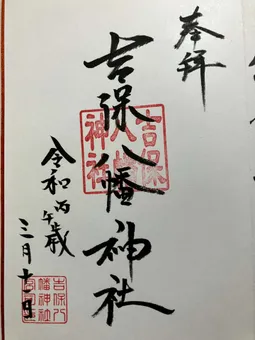 奉拝
吉保八幡神社
吉保
八幡
神社
令和丙午歳
三月十一日
吉保八
幡神社
宮司印